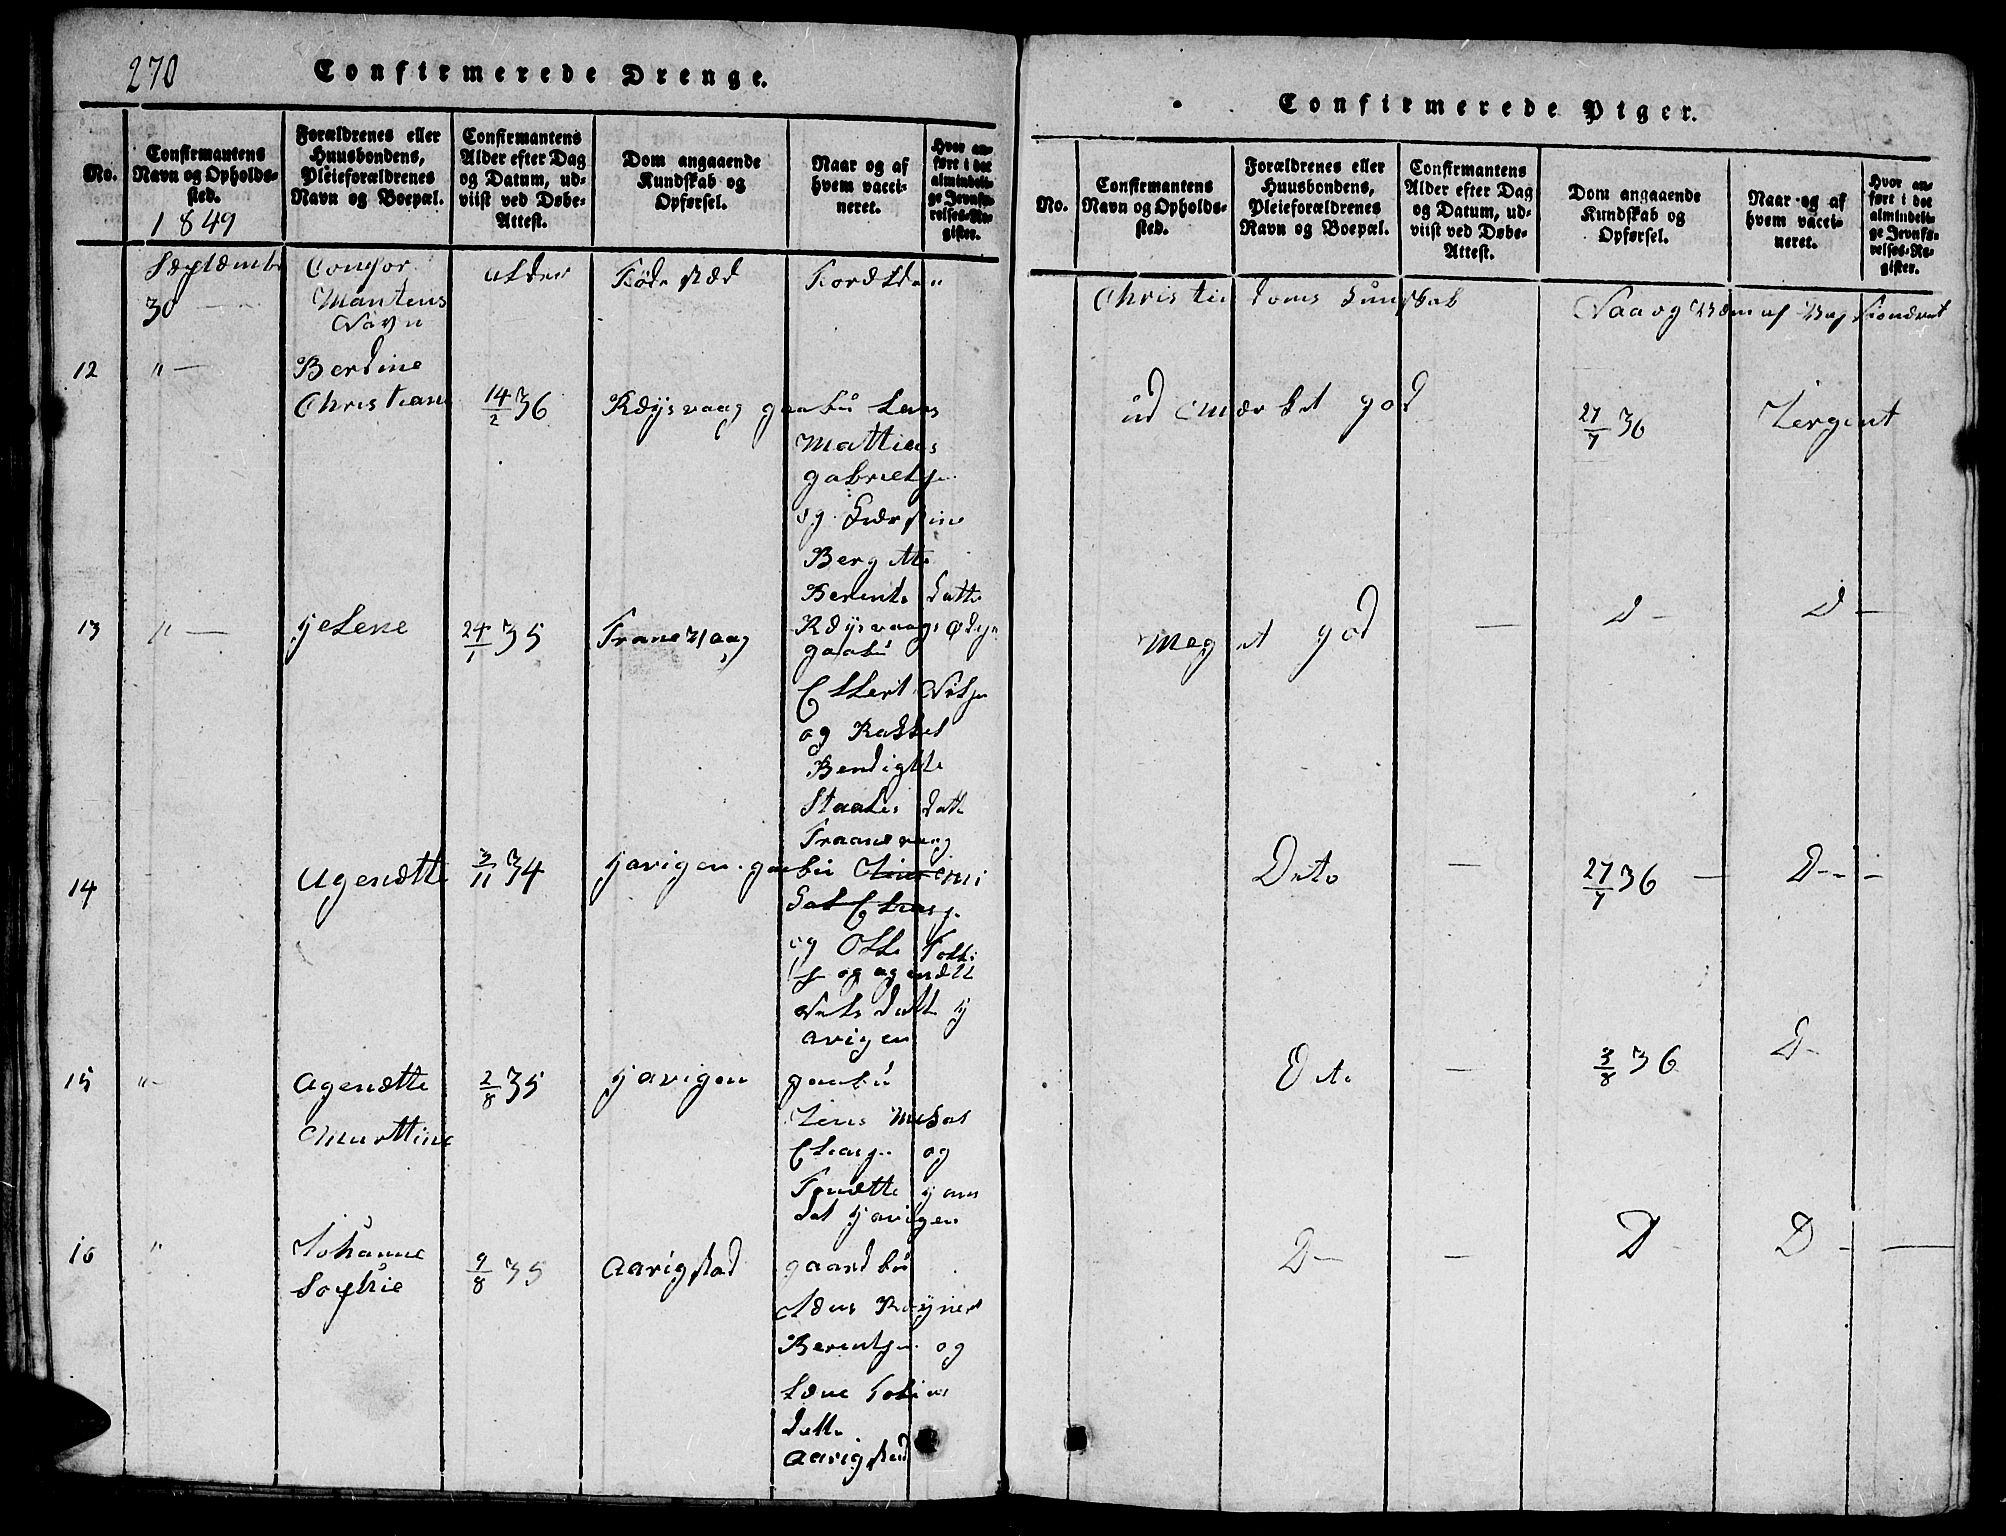 270
Confirmerede Drenge.
No.
Confirmantens
Navn og Opholds-
sted.
1849
Forældrenes eller
Huusbondens,
Pleieforældrenes
Navn og Boepæl.
Confirmantens
Alder efter Dag
og Datum, ud-
viist ved Døbe-
Attest.
Dom angaaende
Kundskab og
Opførsel.
Naar og af
hvem vacci-
neret.
Hvor an-
ført i det
almindeli-
ge Jevnfø-
relses-Re-
gister.
Septembr
30
Confor
Mantens
Navn
Alder
Føde stæd
Foræld
12 " — Bertine
Christiane 14/2 36 Røysvaag gaabü Lars
Mattias
gabrielsen
og
Bergitte
Berents datte
Røysvaag
13 " — Helene 24/1 35 Tranevaag gaabü
Ellert Nilsen
og Rakkel
Bendigtte
Staales datte
Traanevaag
14 Agenætte 3/11 34 Havigen gaabü
og Olle
og agenætt
Nils datte H
avigen
15 " Agenætte 2/8 35 Havigen gaabü
Marttine
Jens Mikal
Eliasen og
Tønætte Hans
dat Havigen
16 " Johanne
Sophie 9/8 35 Aarigstad gaardbü
Røynert
Berentsen og
Lene Tobias
datte
Aarigstad
Confirmerede Piger.
No.
Confirmantens
Navn og Opholds-
sted.
Forældrenes eller
Huusbondens,
Pleieforældrenes
Navn og Boepæl.
Confirmantens
Alder efter Dag
og Datum, ud-
viist ved Døbe-
Attest.
Dom angaaende
Kundskab og
Opførsel.
Naar og af
hvem vacci-
neret.
Hvor an-
ført i det
almindeli-
ge Jevnfø-
relses-Re-
gister.
Christendoms Kunskab
Naa og Væm af
üdmærket god 27/7 36 Zergent
Meget god — D— D—
Deto — 27/7 36 — D—
Deto — 3/8 36 D—
D— — D— D—